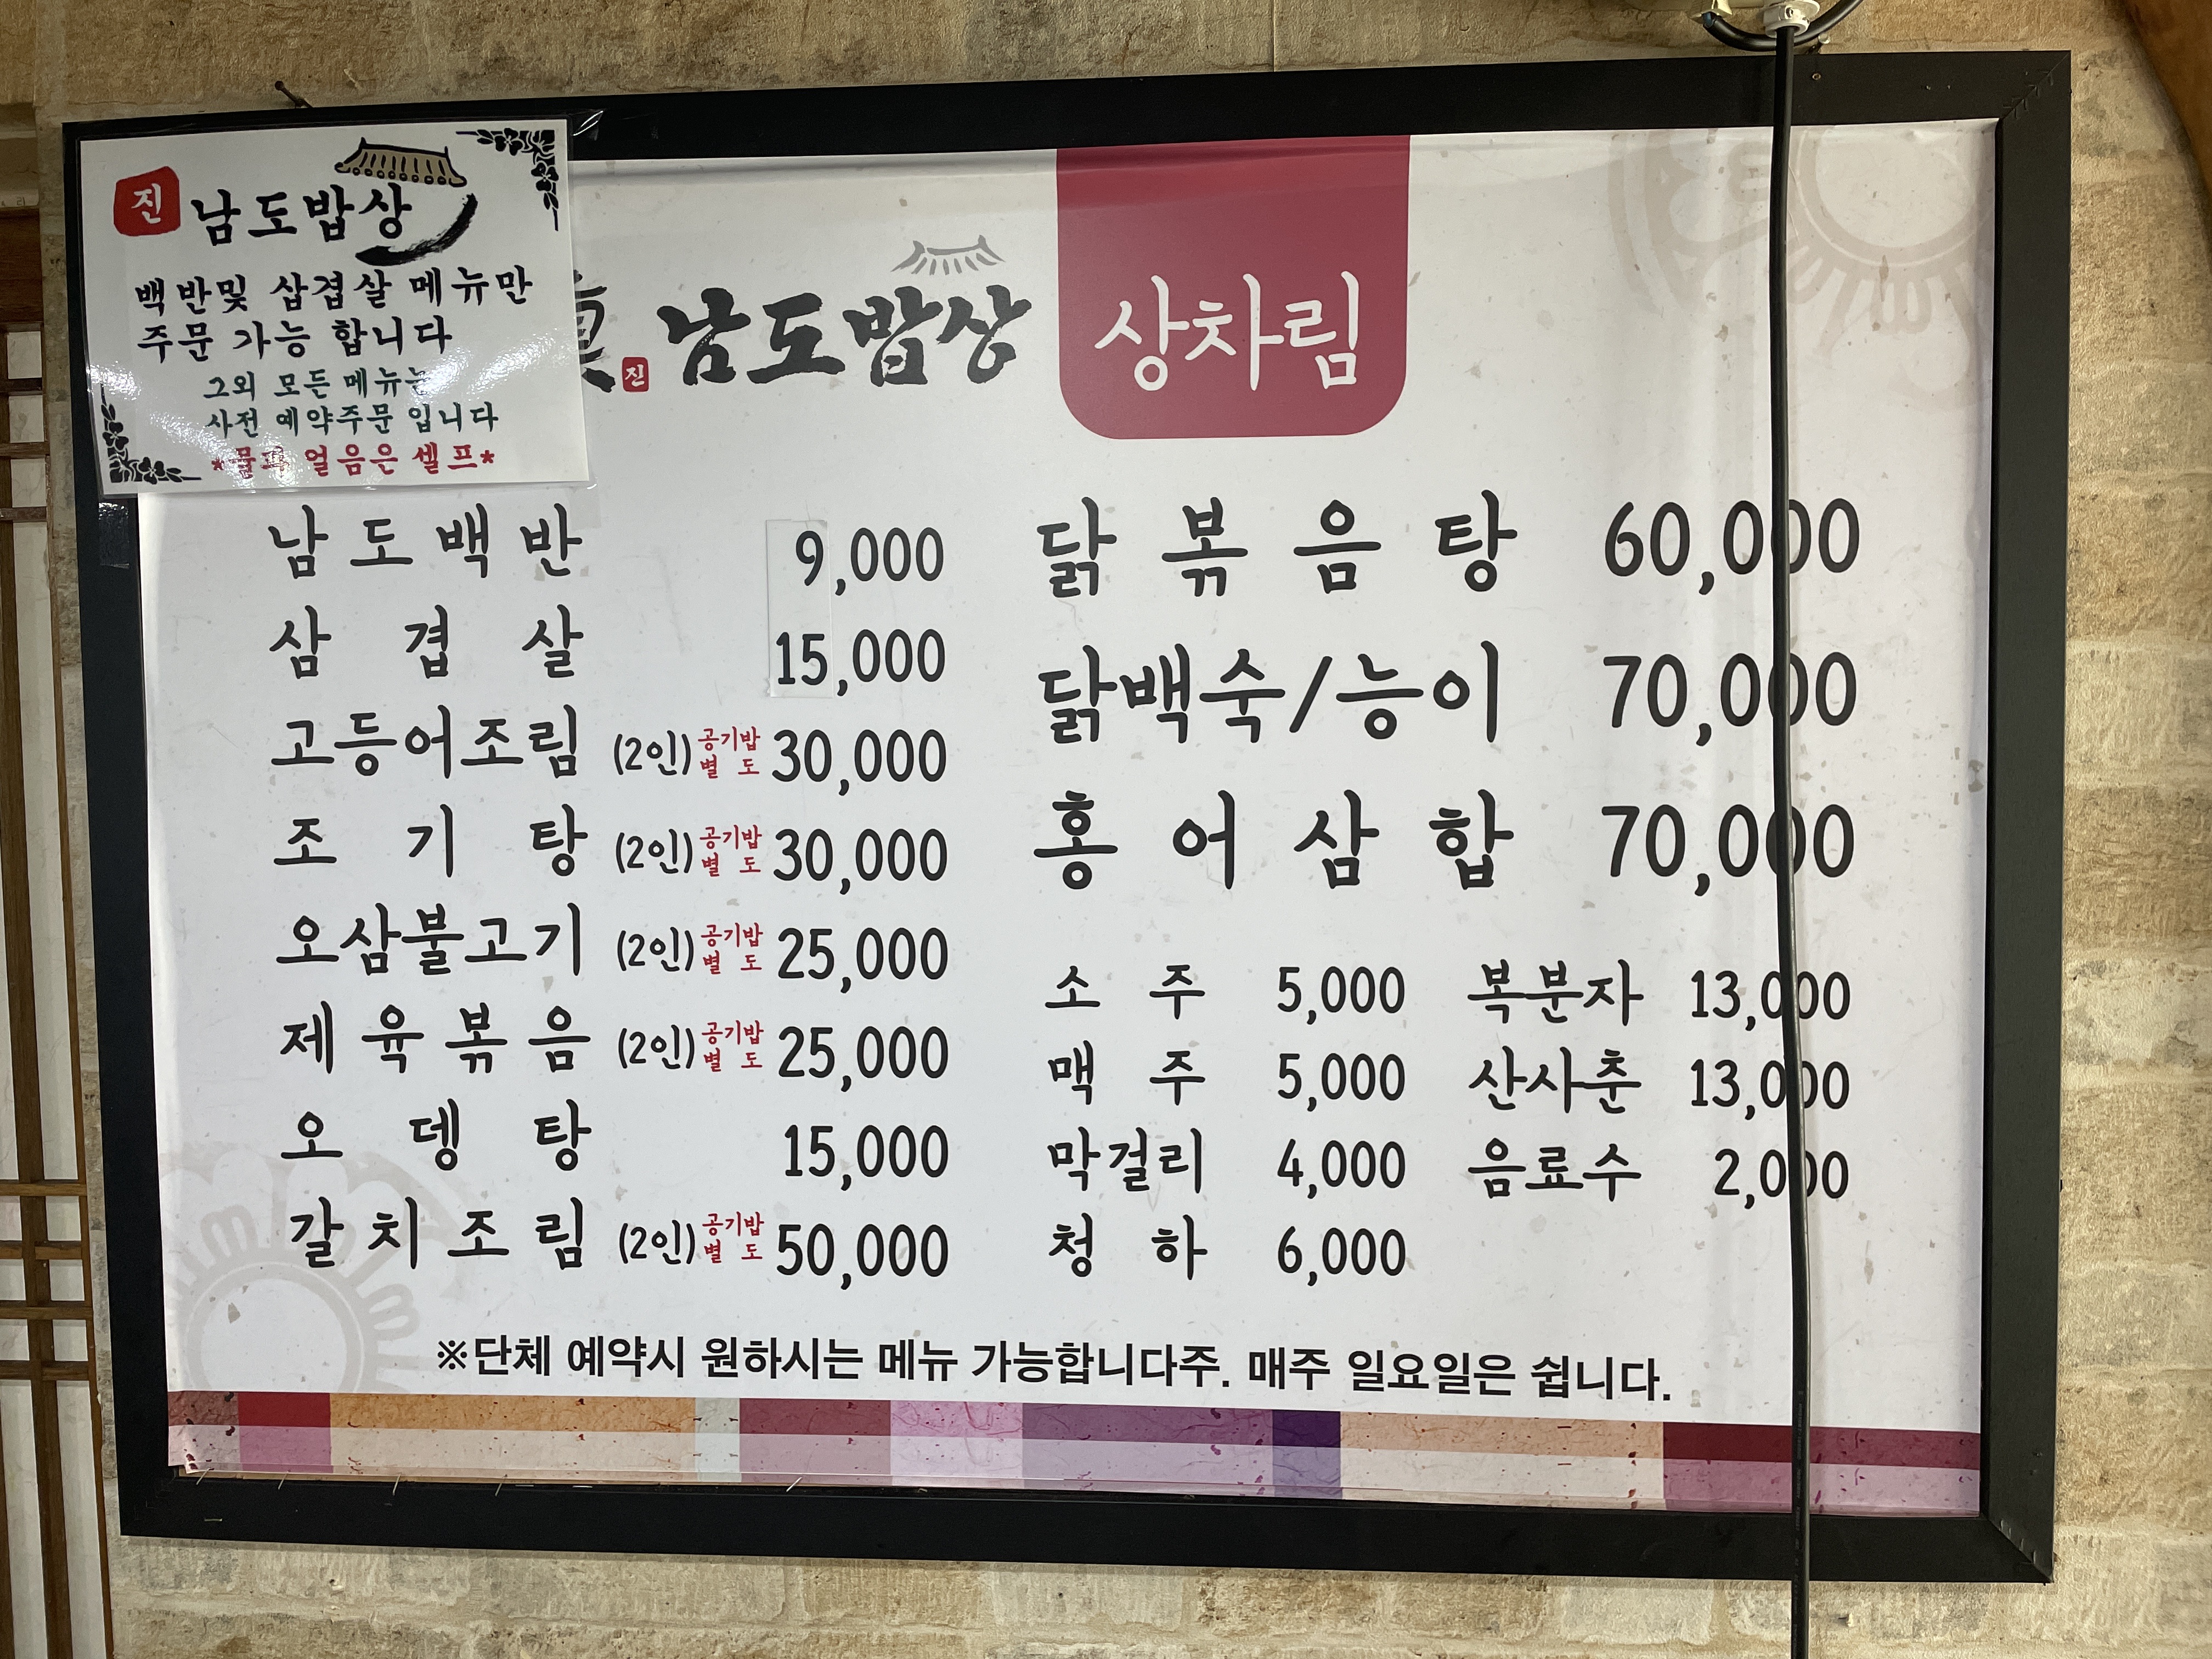 진 남도밥상
백반및 삽겹살 메뉴만
주문 가능 합니다
그외 모든 메뉴는
사전 예약주문 입니다
*물과 얼음은 셀프*
진 남도밥상 상차림
남도백반 9,000
삼겹살 15,000
고등어조림 (2인) 공기밥 별도 30,000
조기탕 (2인) 공기밥 별도 30,000
오삼불고기 (2인) 공기밥 별도 25,000
제육볶음 (2인) 공기밥 별도 25,000
오뎅탕 15,000
갈치조림 (2인) 공기밥 별도 50,000
닭볶음탕 60,000
닭백숙/능이 70,000
홍어삼합 70,000
소주 5,000 복분자 13,000
맥주 5,000 산사춘 13,000
막걸리 4,000 음료수 2,000
청하 6,000
※단체 예약시 원하시는 메뉴 가능합니다주. 매주 일요일은 쉽니다.